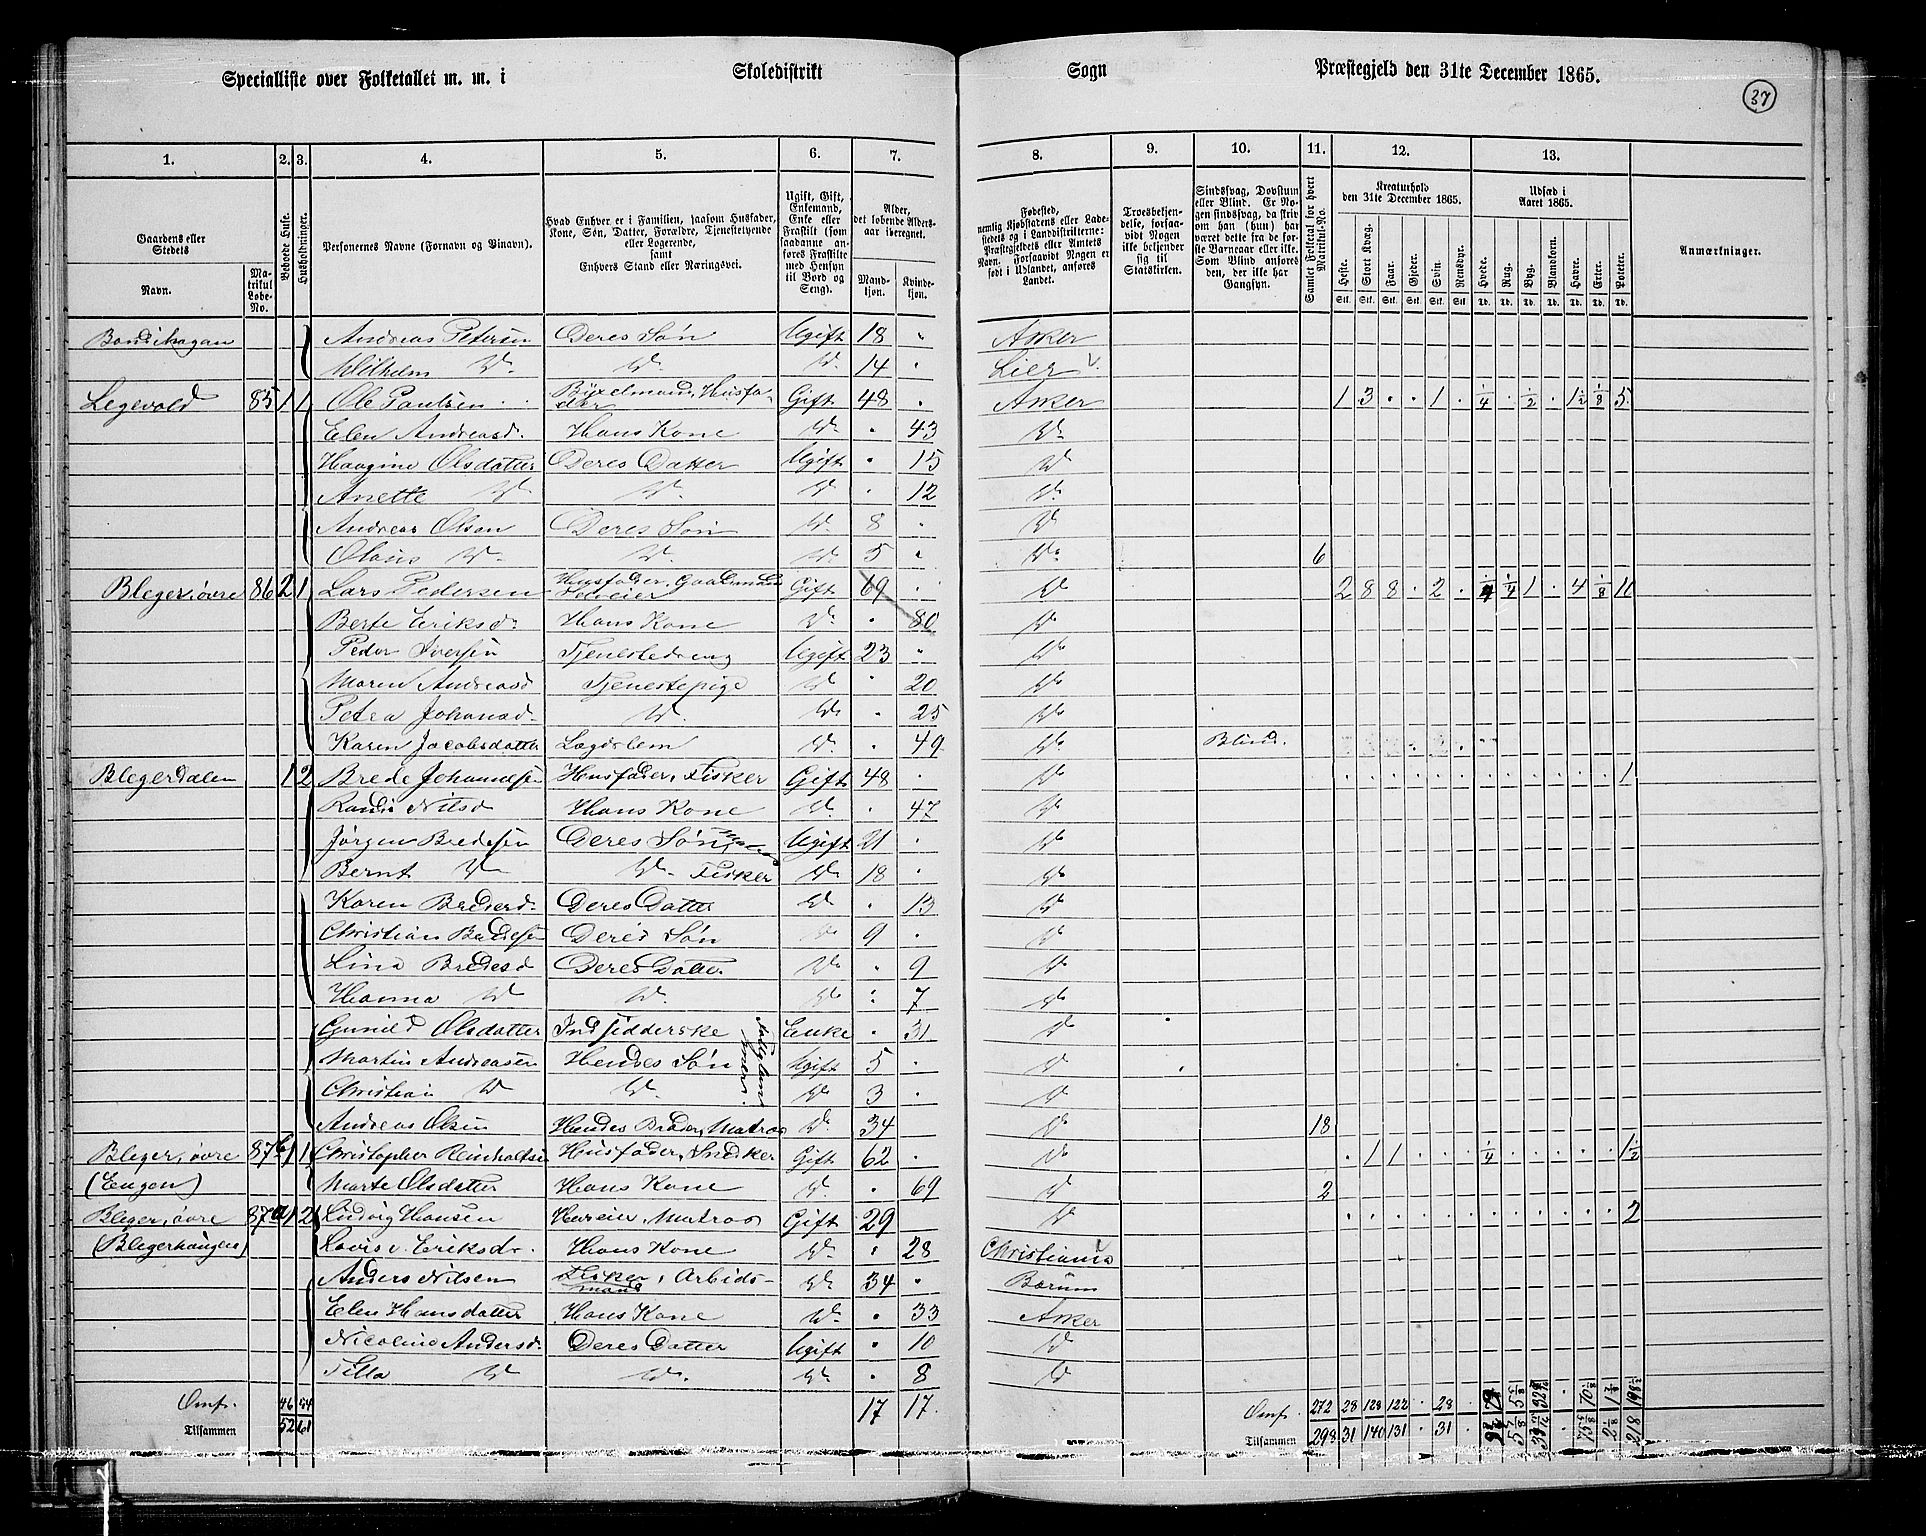 Specialliste over Folketallet m. m. i Skoledistrikt Sogn Præstegjeld den 31te December 1865.
37
1. 2. 3. 4. 5. 6. 7. 8. 9. 10. 11. 12. 13.
Gaardens eller Stedets Navn. Matrikul Løbe-No.
Beboede Huse.
Husholdninger.
Personernes Navne (Fornavn og Binavn).
Hvad Enhver er i Familien, saasom Husfader, Kone, Søn, Datter, Forældre, Tjenestetyende eller Logerende, samt Enhvers Stand eller Næringsvei.
Ugift, Gift, Enkemand, Enke eller Fraskilt (som saadanne anføres Fraskilte med Hensyn til Bord og Seng).
Alder, det løbende Aldersaar iberegnet. Mandkjøn. Kvindekjøn.
Fødested, nemlig Kjøbstadens eller Ladestedets og i Landdistrikterne: Præstegjeldets eller Amtets Navn. Forsaavidt Nogen er født i Udlandet, anføres Landet.
Troesbekjendelse, forsaavidt Nogen ikke bekjender sig til Statskirken.
Sindssvag, Døvstum eller Blind. Er Nogen sindssvag, da skriv om han (hun) har været dette fra de første Barneaar eller ikke. Som Blind anføres den, der ikke har Gangsyn.
Samlet Folketal for hvert Matrikul-No.
Kreaturhold den 31te December 1865. Heste. Stort Kvæg. Faar. Gjeder. Svin. Rensdyr.
Udsæd i Aaret 1865. Hvede. Rug. Byg. Blandkorn. Havre. Erter. Poteter.
Anmærkninger.
Bondihagan Andreas Petersen Deres Søn Ugift 18 " Asker
Wilhelm Do. Do. Do. 14 " Lier
Legevold 85 1 1 Ole Paulsen Bøxelmand, Husfader Gift 48 . Asker 1 3 . . 1 . 1/4 . 1/2 . 1 1/2 1/8 5
Elen Andreasd. Hans Kone Do. . 43 Do.
Haagine Olsdatter Deres Datter Ugift . 15 Do
Anette Do. Do. Do . 12 Do.
Andreas Olsen Deres Søn Do 8 . Do
Olaus Do. Do. Do 5 . Do. 6
Bleger, øvre 86 2 1 Lars Pedersen Husfader, Gaardmand Selveier Gift 69 . Do 2 8 8 . 2 . 1/4 1 . 4 1/8 10
Berte Eriksd. Hans Kone Do. . 80 Do
Peder Iversen Tjenestedreng Ugift 23 " Do
Maren Andreasd Tjenestepige Do . 20 Do
Petra Johansd. Do. Do. . 25 Do
Karen Jacobsdatter Lægdslem Do. . 49 Do. Blind.
Blegerdalen 1 2 Brede Johannesen Husfader, Fisker Gift 48 . Do 1
Randi Nilsd Hans Kone Do . 47 Do
Jørgen Bredesen Deres Søn, Matros Ugift 21 . Do
Bernt Do Do Fisker Do 18 . Do
Karen Bredesd. Deres Datter Do . 13 Do
Christian Bredesen Deres Søn Do 9 . Do
Lina Bredesd Deres Datter Do . 9 Do
Hanna Do Do. Do . 7 Do
Gunild Olsdatter Indsidderske Enke . 31 Do
Martin Andreasen Hendes Søn Ugift 5 . Do
Christian Do Do. Do 3 . Do
Andreas Olsen Hendes Broder, Matros Do. 34 Do 18
Bleger, øvre 87 b 1 1 Christopher Reinholtsen Husfader, Snedker Gift 62 . Do . 1 1 . . . 1/4 . . . . . 1 1/2
(Engen) Marte Olsdatter Hans Kone Do. . 69 Do 2
Bleger, øvre 87 a 1 2 Ludvig Hansen Huseier, Matros Gift 29 Do 2
(Blegerhaugen) Lovise Eriksd. Hans Kone Do. . 28 Christiania
Anders Nilsen Fisker, Arbidsmand Do 34 . Bærum
Elen Hansdatter Hans Kone Do. . 33 Asker
Nicoline Andersd. Deres Datter Ugift . 10 Do
Tilla Do Do. Do . 8 Do
Omf. 46 54 17 17. Omf. 272 28 128 122 . 28 .
Tilsammen 52 61 Tilsammen 298 31 140 131 . 31 .